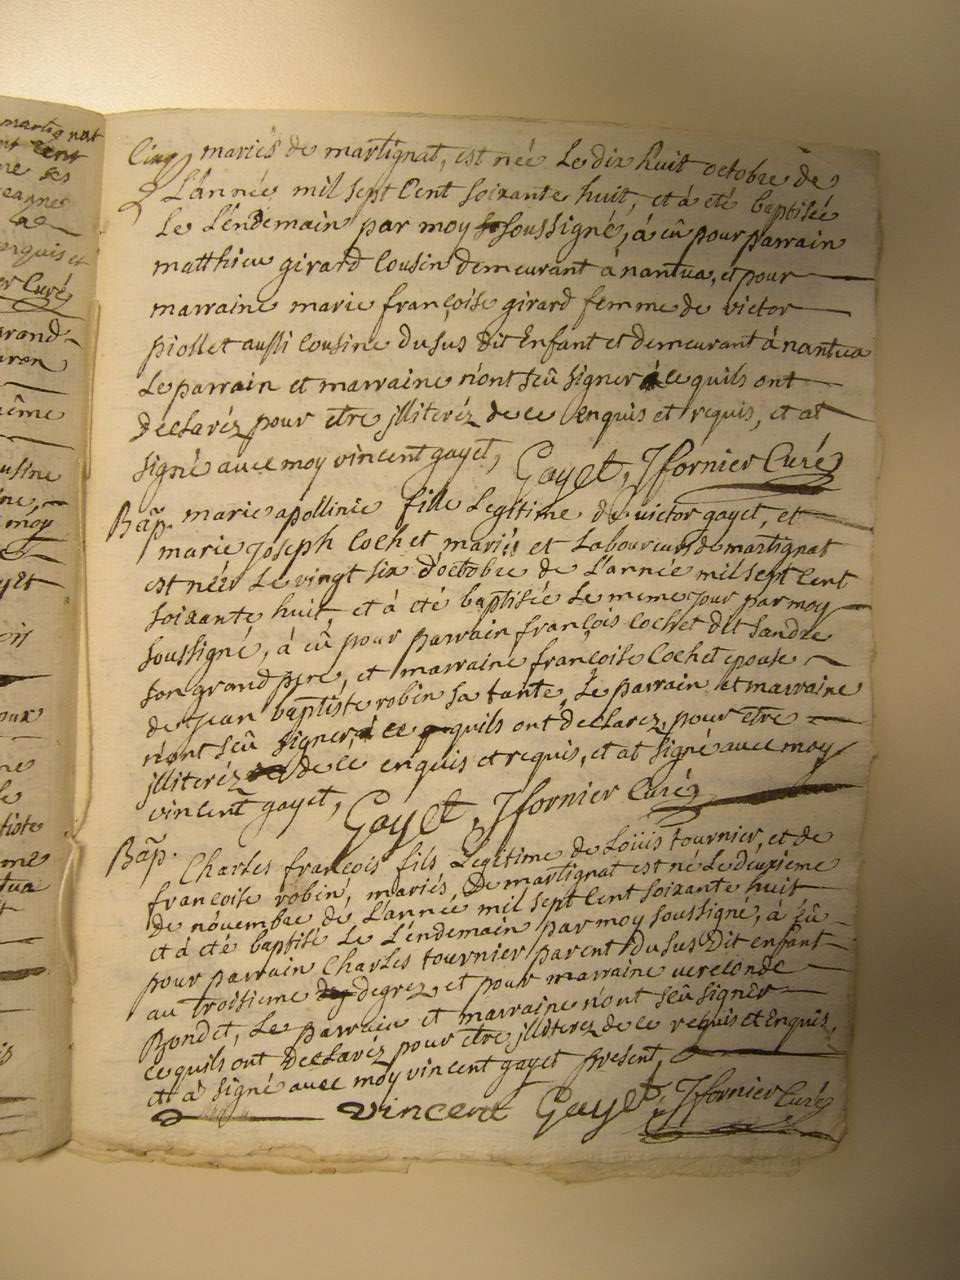 martignat
Curé
grand
même
cousine
moy
Cinq mariés de martignat, est née Le dix huit octobre de
L'année mil sept Cent soixante huit, et à été baptisée
Le Lendemain par moy soussigné, à eû pour parrain
matthieu girard Cousin demeurant à nantua, et pour
marraine marie françoise girard femme de victor
piollet aussi Cousine du sus dit Enfant et demeurant à nantua
Le parrain et marraine n'ont sçû signer à ce quils ont
declaréz pour être jlliteréz de ce enquis et requis, et at
signé avec moy vincent gayet, Gayet, Jfornier Curé
Bap. marie apollinie fille Legitime de victor gayet, et
marie Joseph Cochet mariés et Laboureurs de martignat
est née Le vingt six d'octobre de L'année mil sept Cent
soixante huit, et à été baptisée Le meme jour par moy
soussigné, à eû pour parrain françois Cochet dit sandre
son grand pere, et marraine françoise Cochet epouse
de Jean baptiste robin sa tante, Le parrain et marraine
n'ont sçû signer, à ce quils ont declarez, pour être
jlliteréz de ce enquis et requis, et at signé avec moy
vincent gayet, Gayet, Jfornier Curé
Bap. Charles françois fils Legitime de Loüis tournier, et de
françoise robin, mariés, de martignat est né Le deuxieme
de novembre de L'année mil sept Cent soixante huit
et à été baptisé Le Lendemain par moy soussigné, à eû
pour parrain Charles tournier parent du sus dit enfant
au troisieme degrez, et pour marraine vereconde
Bondet, Le parrain et marraine n'ont sçû signer
ce quils ont declaréz pour être jlliterez de ce requis et Enquis,
et à signé avec moy vincent gayet present,
vincent Gayet, Jfornier Curé